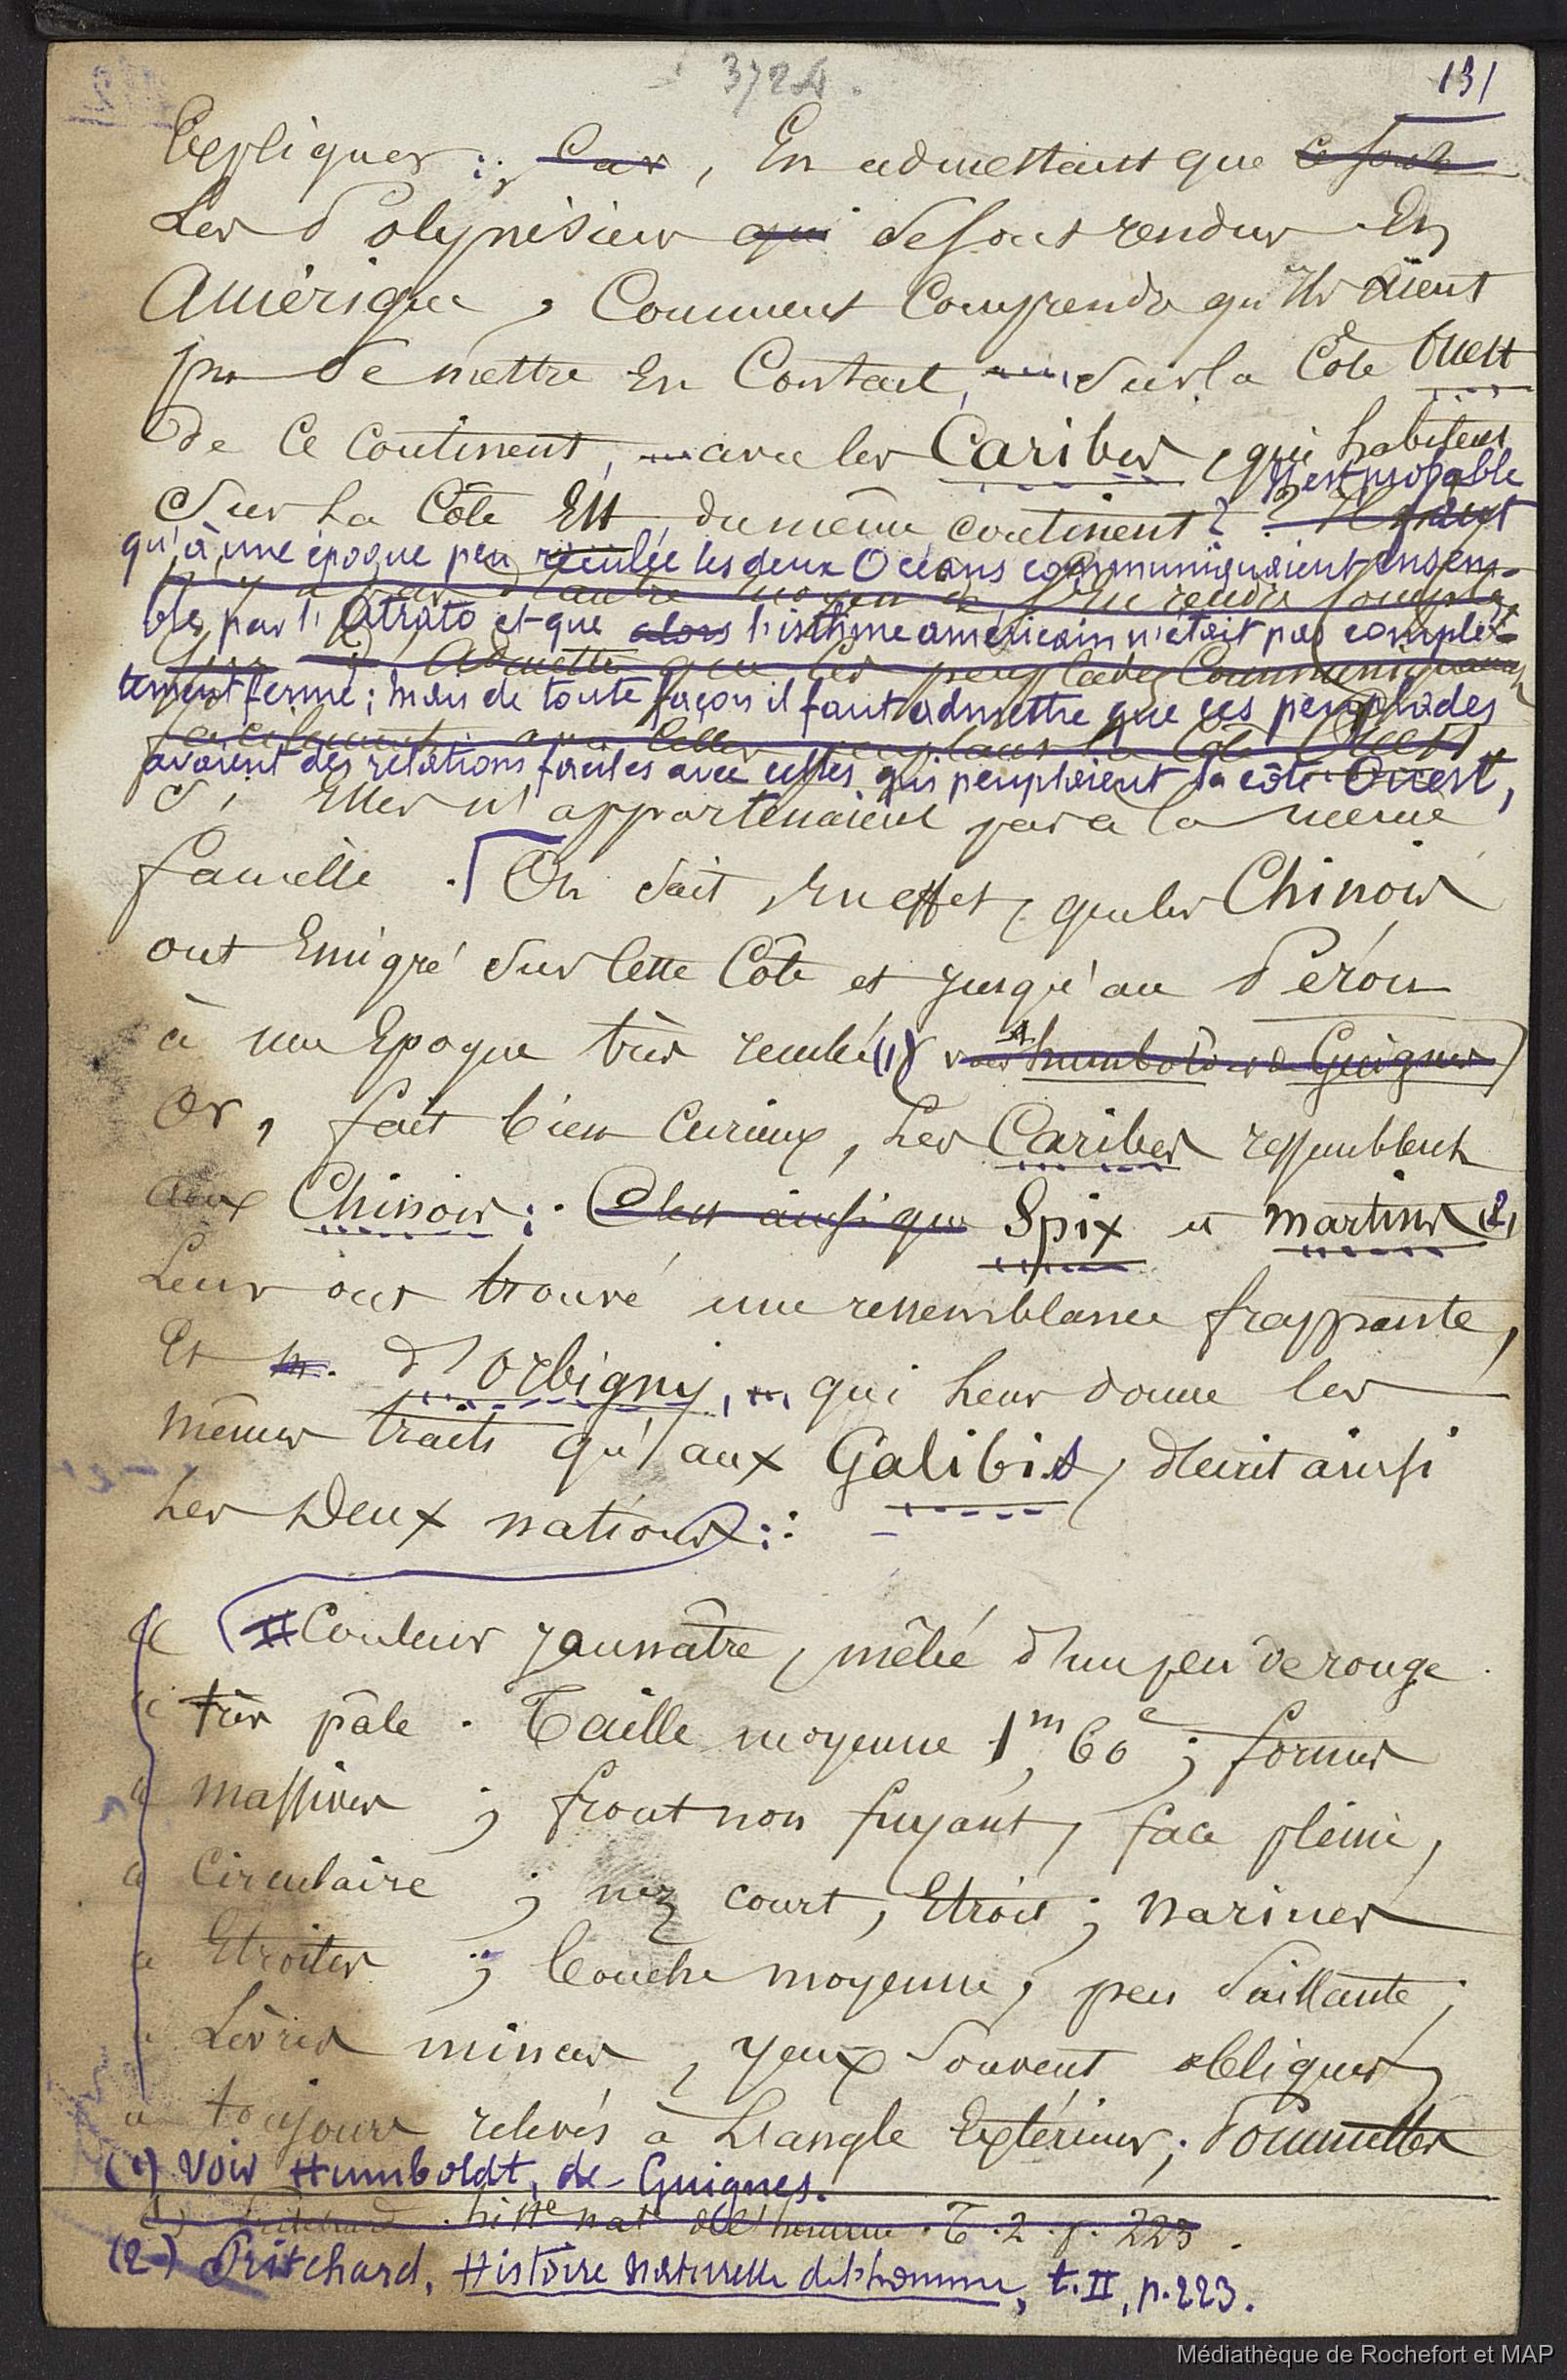 372A.
131
Expliquer : Car , En admettant que ce sont
Les Polynésiens qui se sont rendus En
Amérique, Comment Comprendre qu'ils aient
pu se mettre En Contact, sur la Côte Ouest
de ce continent, avec les Caribes, qui habitent
Il est probable
sur la Côte Est du même continent ? Il faut
qu'à une époque peu reculée les deux Océans communiquaient ensem-
Il n'y a pas d'autre moyen de s'en rendre compte
ble, par l'Atrato et que alors l'isthme américain n'était pas complè-
d'admettre que ces peuplades communiquaient
tement fermé ; mais de toute façon il faut admettre que ces peuplades
facilement avec celles peuplant la Côte Ouest
avaient des relations faciles avec celles qui peuplaient la côte Ouest,
si Elles n'appartenaient pas à la même
famille . On sait, En effet, que les Chinois
ont Emigré sur cette Côte et jusqu'au Pérou
à une Epoque très reculée (1) voir humboldt et de Guignes)
Or, fait bien curieux, Les Caribes ressemblent
aux Chinois : C'est ainsi que Spix et martius (2)
Leur ont trouvé une ressemblance frappante,
Et m. d'Orbigny, qui leur donne les
mêmes traits qu'aux Galibis, décrit ainsi
les Deux nations :
« Couleur jaunâtre, mêlé d'un peu de rouge
« très pâle . Taille moyenne 1m,60c ; formes
« massives ; front non fuyant, face pleine,
« circulaire ; nez court, Etroit ; narines
« Etroites ; bouche moyenne, peu saillante ;
« Lèvres minces, yeux souvent obliques,
« toujours relevés à L'angle Extérieur ; Pommettes
(1) Voir Humboldt, de Guignes.
(1) Pritchard . histre natle de l'homme . T . 2 . p . 223 .
(2) Pritchard, Histoire Naturelle de l'homme, t. II, p. 223.
Médiathèque de Rochefort et MAP